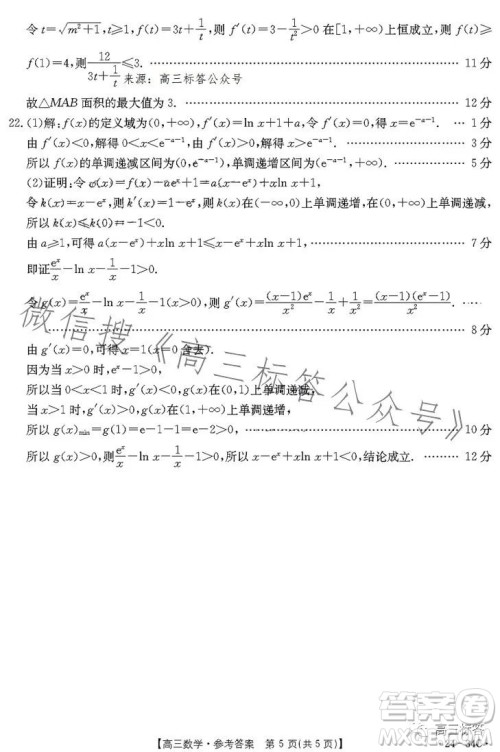 令t=√(m²+1),t≥1,f(t)=3t+1/t,则f′(t)=3-1/t²>0在[1,+∞)上恒成立,则f(t)≥
f(1)=4,则12/(3t+1/t) 来源:高三标答公众号 11分
故△MAB面积的最大值为3. 12分
22.(1)解:f(x)的定义域为(0,+∞),f′(x)=ln x+1+a,令f′(x)=0,得x=e^(-a-1). 1分
由f′(x)<0,得0<x<e^(-a-1). 3分
所以f(x)的单调递减区间为(0,e^(-a-1)). 5分
(2)证明:令φ(x)=f(x)-ae^x+1=a(x-e^x)+xln x+1,
令k(x)=x-e^x,则k′(x)=1-e^x,k(x)在(-∞,0)上单调递增,在(0,+∞)上单调递减,
所以k(x)≤k(0)=-1<0.
由a≥1,可得a(x-e^x)+xln x+1≤x-e^x+xln x+1, 7分
即证e^x/x-ln x-1/x-1>0.
令g(x)=e^x/x-ln x-1/x-1(x>0),则g′(x)=(x-1)e^x/x²-1/x+1/x²=(x-1)(e^x-1)/x².
8分
由g′(x)=0,可得x=1(x=0舍去).
因为当x>1时,g′(x)>0,当0<x<1时,g′(x)<0,
所以当0<x<1时,g(x)在(0,1)上单调递减,
当x>1时,g(x)在(1,+∞)上单调递增,
所以g(x)min=g(1)=e-1-1=e-2>0, 10分
所以g(x)>0,则e^x/x-ln x-1/x-1>0,所以x-e^x+xln x+1<0,结论成立. 12分
微信搜《高三标答公众号》
【高三数学·参考答案 第5页(共5页)】
高三标答